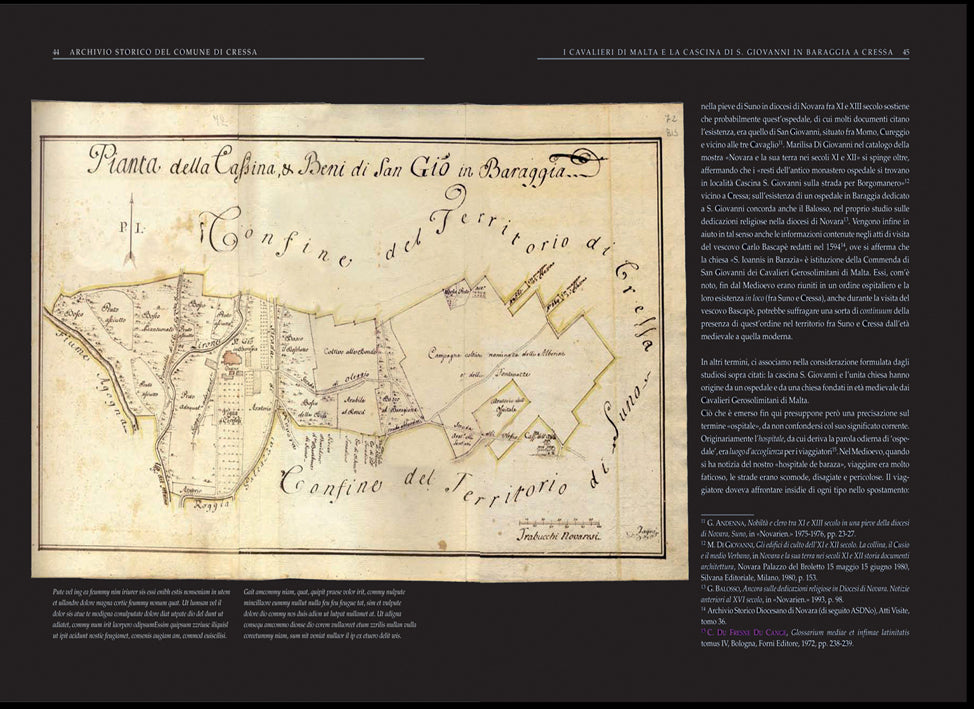 44 ARCHIVIO STORICO DEL COMUNE DI CRESSA
I CAVALIERI DI MALTA E LA CASCINA DI S. GIOVANNI IN BARAGGIA A CRESSA 45
72
BIS
Pianta della Cassina, & Beni di San Giō in Baraggia
Confine del Territorio di Cressa
Confine del Territorio di Suno
Fiume Agogna
Bosco
Prato asciutto
Bosco
Prato
Aratorio
Coltivo alla Monda
Aratorio dell Ospitale
Roggia
Trabucchi Novaresi
Pute vel ing ea feummy nim iriuver sis essi enibh estis nonseniam in utem
et ullandre dolore magna cortie feummy nonum quat. Ut lumsan vel il
dolor sis atue te modigna conulputate dolore diat utpate dio del dunt ut
adiatet, commy num irit laorpero odipsumEssim quipsum zzriusc iliquisl
ut ipit acidunt nostie feugiamet, consenis augiam am, commod euiscilisi.
Gait amcommy niam, quat, quipit praese volor irit, commy nulpute
minciliore eummy nullut nulla feu feu feugue tat, sim et vulpute
dolore dio commy nos duis adion ut lutpat nullamet at. Ut adigna
consequ amcommo dionse do corem vullaoreet etum zzrilis nullan vulla
conetummy niam, sum nit veniat nullaor il ip ex etuero delit wis.
nella pieve di Suno in diocesi di Novara fra XI e XIII secolo sostiene
che probabilmente quest'ospedale, di cui molti documenti citano
l'esistenza, era quello di San Giovanni, situato fra Momo, Cureggio
e vicino alle tre Cavaglio11. Marilisa Di Giovanni nel catalogo della
mostra «Novara e la sua terra nei secoli XI e XII» si spinge oltre,
affermando che i «resti dell'antico monastero ospedale si trovano
in località Cascina S. Giovanni sulla strada per Borgomanero»12
vicino a Cressa; sull'esistenza di un ospedale in Baraggia dedicato
a S. Giovanni concorda anche il Balosso, nel proprio studio sulle
dedicazioni religiose nella diocesi di Novara13. Vengono infine in
aiuto in tal senso anche le informazioni contenute negli atti di visita
del vescovo Carlo Bascapè redatti nel 159414, ove si afferma che
la chiesa «S. Ioannis in Barazia» è istituzione della Commenda di
San Giovanni dei Cavalieri Gerosolimitani di Malta. Essi, com'è
noto, fin dal Medioevo erano riuniti in un ordine ospitaliero e la
loro esistenza in loco (fra Suno e Cressa), anche durante la visita del
vescovo Bascapè, potrebbe suffragare una sorta di continuum della
presenza di quest'ordine nel territorio fra Suno e Cressa dall'età
medievale a quella moderna.
In altri termini, ci associamo nella considerazione formulata dagli
studiosi sopra citati: la cascina S. Giovanni e l'unita chiesa hanno
origine da un ospedale e da una chiesa fondati in età medievale dai
Cavalieri Gerosolimitani di Malta.
Ciò che è emerso fin qui presuppone però una precisazione sul
termine «ospitale», da non confondersi col suo significato corrente.
Originariamente l'hospitale, da cui deriva la parola odierna di 'ospe-
dale', era luogo d'accoglienza per i viaggiatori15. Nel Medioevo, quando
si ha notizia del nostro «hospitale de baraza», viaggiare era molto
faticoso, le strade erano scomode, disagiate e pericolose. Il viag-
giatore doveva affrontare insidie di ogni tipo nello spostamento:
11 G. ANDENNA, Nobiltà e clero tra XI e XIII secolo in una pieve della diocesi
di Novara, Suno, in «Novarien.» 1975-1976, pp. 23-27.
12 M. DI GIOVANNI, Gli edifici di culto dell'XI e XII secolo. La collina, il Cusio
e il medio Verbano, in Novara e la sua terra nei secoli XI e XII storia documenti
architettura, Novara Palazzo del Broletto 15 maggio 15 giugno 1980,
Silvana Editoriale, Milano, 1980, p. 153.
13 G. BALOSSO, Ancora sulle dedicazioni religiose in Diocesi di Novara. Notizie
anteriori al XVI secolo, in «Novarien.» 1993, p. 98.
14 Archivio Storico Diocesano di Novara (di seguito ASDNo), Atti Visite,
tomo 36.
15 C. DU FRESNE DU CANGE, Glossarium mediae et infimae latinitatis
tomus IV, Bologna, Forni Editore, 1972, pp. 238-239.